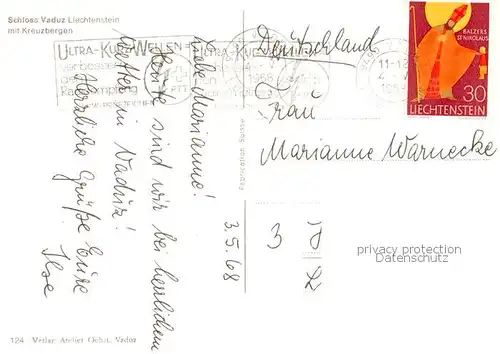 Schloss Vaduz Liechtenstein
mit Kreuzbergen
ULTRA-KURZ-WELLEN
verbessern
ULTRA-KURZ
Liebe Marianne!
Heute sind wir bei herrlichem
Wetter in Vaduz!
Herzliche Grüße Eure
Ilse
3.5.68
Fabrication Suisse
Deutschland
Frau
Marianne Warnecke
3
BALZERS
ST NIKOLAUS
30
LIECHTENSTEIN
11-12
1968
privacy protection
Datenschutz
124 Verlag Atelier Ospelt, Vaduz